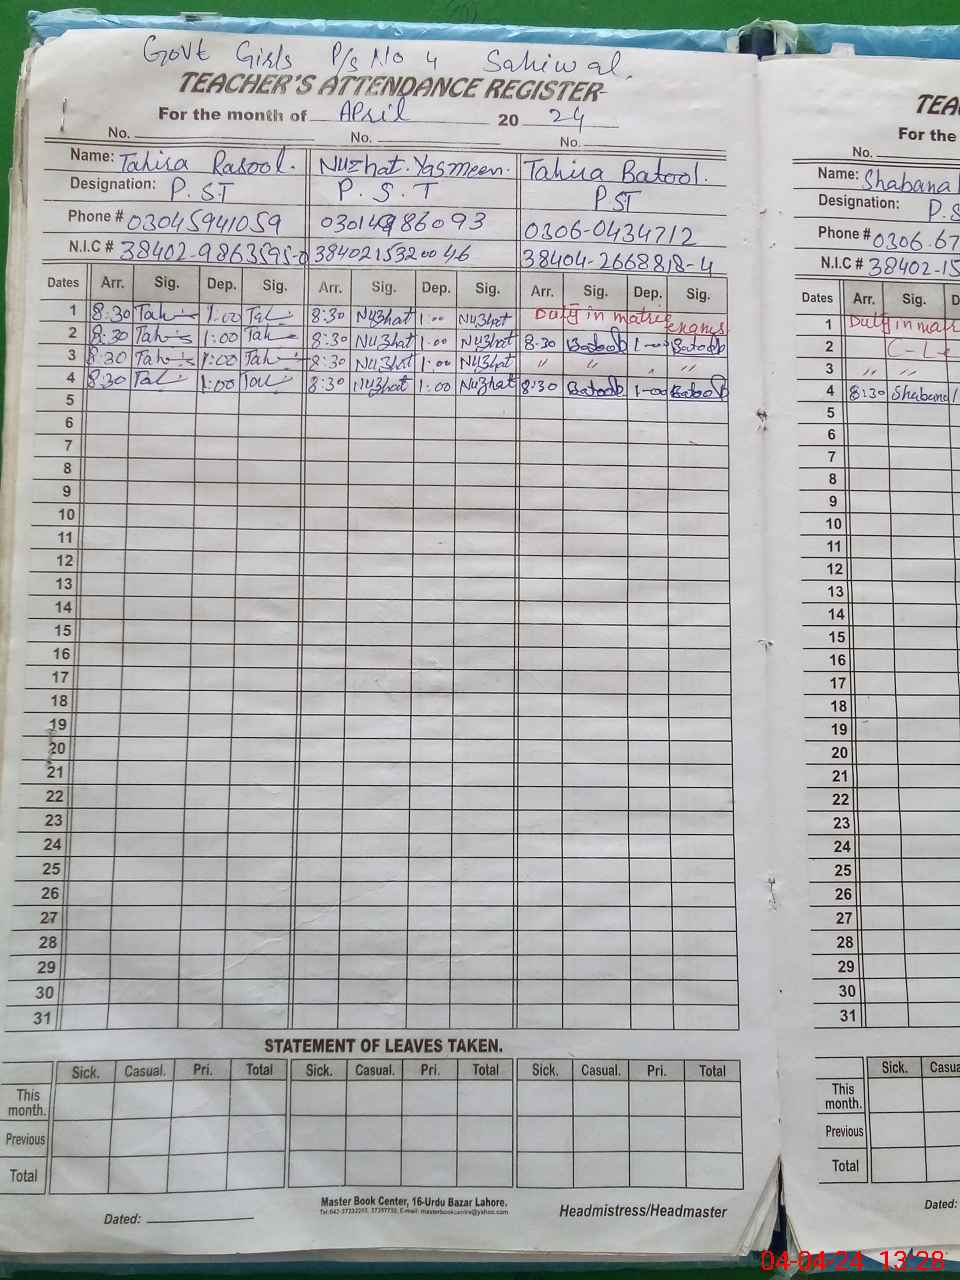 Govt Girls P/s No 4 Sahiwal.
TEACHER'S ATTENDANCE REGISTER
For the month of April 2024
No. No. No.
Name: Tahira Rasool. Nuzhat. Yasmeen. Tahira Batool.
Designation: P.ST P. S. T P.ST
Phone # 03045941059 0306-0434712
N.I.C # 38402 3840215320046 38404-2668818-4
Dates Arr. Sig. Dep. Sig. Arr. Sig. Dep. Sig. Arr. Sig. Dep. Sig.
1 8:30 1:00 8:30 Nuzhat 1:00 Nuzhat Duty in matric exams
2 8:30 1:00 8:30 Nuzhat 1:00 Nuzhat 8-30 Batool 1-00 Batool
3 8:30 1:00 8:30 Nuzhat 1:00 Nuzhat " " " "
4 8:30 1:00 8:30 Nuzhat 1:00 Nuzhat 8:30 Batool 1-00 Batool
5
6
7
8
9
10
11
12
13
14
15
16
17
18
19
20
21
22
23
24
25
26
27
28
29
30
31
STATEMENT OF LEAVES TAKEN.
Sick. Casual. Pri. Total Sick. Casual. Pri. Total Sick. Casual. Pri. Total
This month.
Previous
Total
Master Book Center, 16-Urdu Bazar Lahore.
Dated: Headmistress/Headmaster
TEA
For the
No.
Name: Shabana
Designation: P.S
Phone # 0306-67
N.I.C # 38402-15
Dates Arr. Sig. D
1 Duty in mat
2 C-Le
3 " "
4 8:30 Shabana
5
6
7
8
9
10
11
12
13
14
15
16
17
18
19
20
21
22
23
24
25
26
27
28
29
30
31
Sick. Casua
This month.
Previous
Total
Dated:
04-04-24 13:28